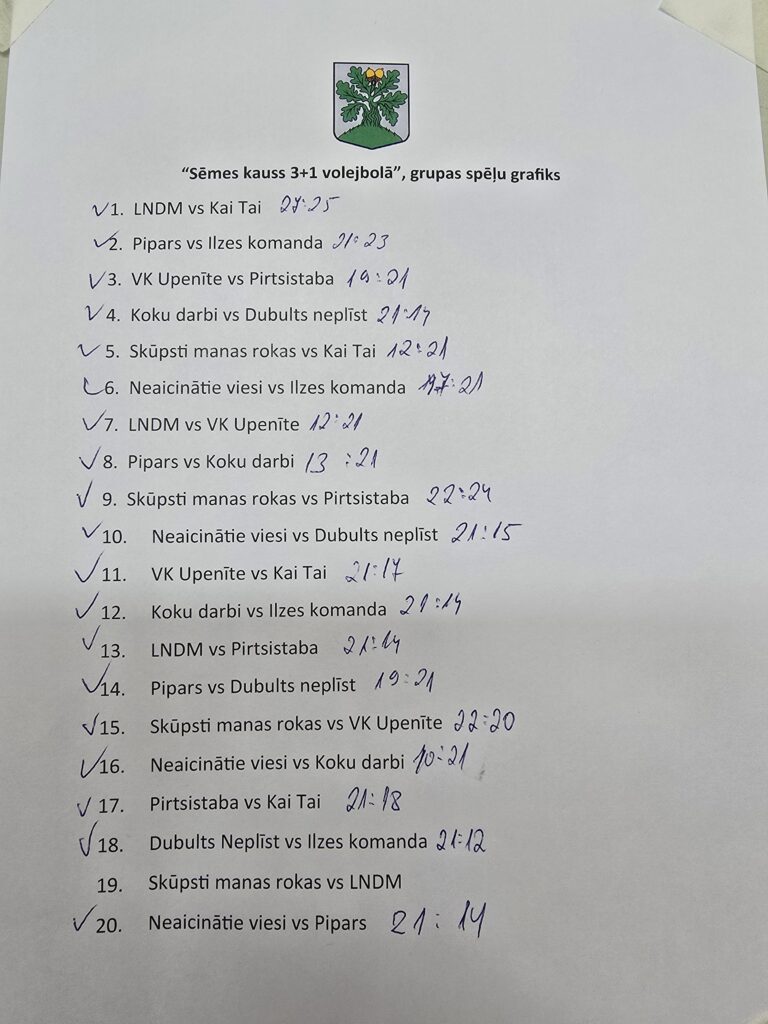 “Sēmes kauss 3+1 volejbolā”, grupas spēļu grafiks
✓1. LNDM vs Kai Tai 27:25
✓2. Pipars vs Ilzes komanda 21:23
✓3. VK Upenīte vs Pirtsistaba 19:21
✓4. Koku darbi vs Dubults neplīst 21:14
✓5. Skūpsti manas rokas vs Kai Tai 12:21
✓6. Neaicinātie viesi vs Ilzes komanda 17:21
✓7. LNDM vs VK Upenīte 12:21
✓8. Pipars vs Koku darbi 13:21
✓9. Skūpsti manas rokas vs Pirtsistaba 22:24
✓10. Neaicinātie viesi vs Dubults neplīst 21:15
✓11. VK Upenīte vs Kai Tai 21:17
✓12. Koku darbi vs Ilzes komanda 21:14
✓13. LNDM vs Pirtsistaba 21:14
✓14. Pipars vs Dubults neplīst 19:21
✓15. Skūpsti manas rokas vs VK Upenīte 22:20
✓16. Neaicinātie viesi vs Koku darbi 10:21
✓17. Pirtsistaba vs Kai Tai 21:18
✓18. Dubults Neplīst vs Ilzes komanda 21:12
19. Skūpsti manas rokas vs LNDM
✓20. Neaicinātie viesi vs Pipars 21:14